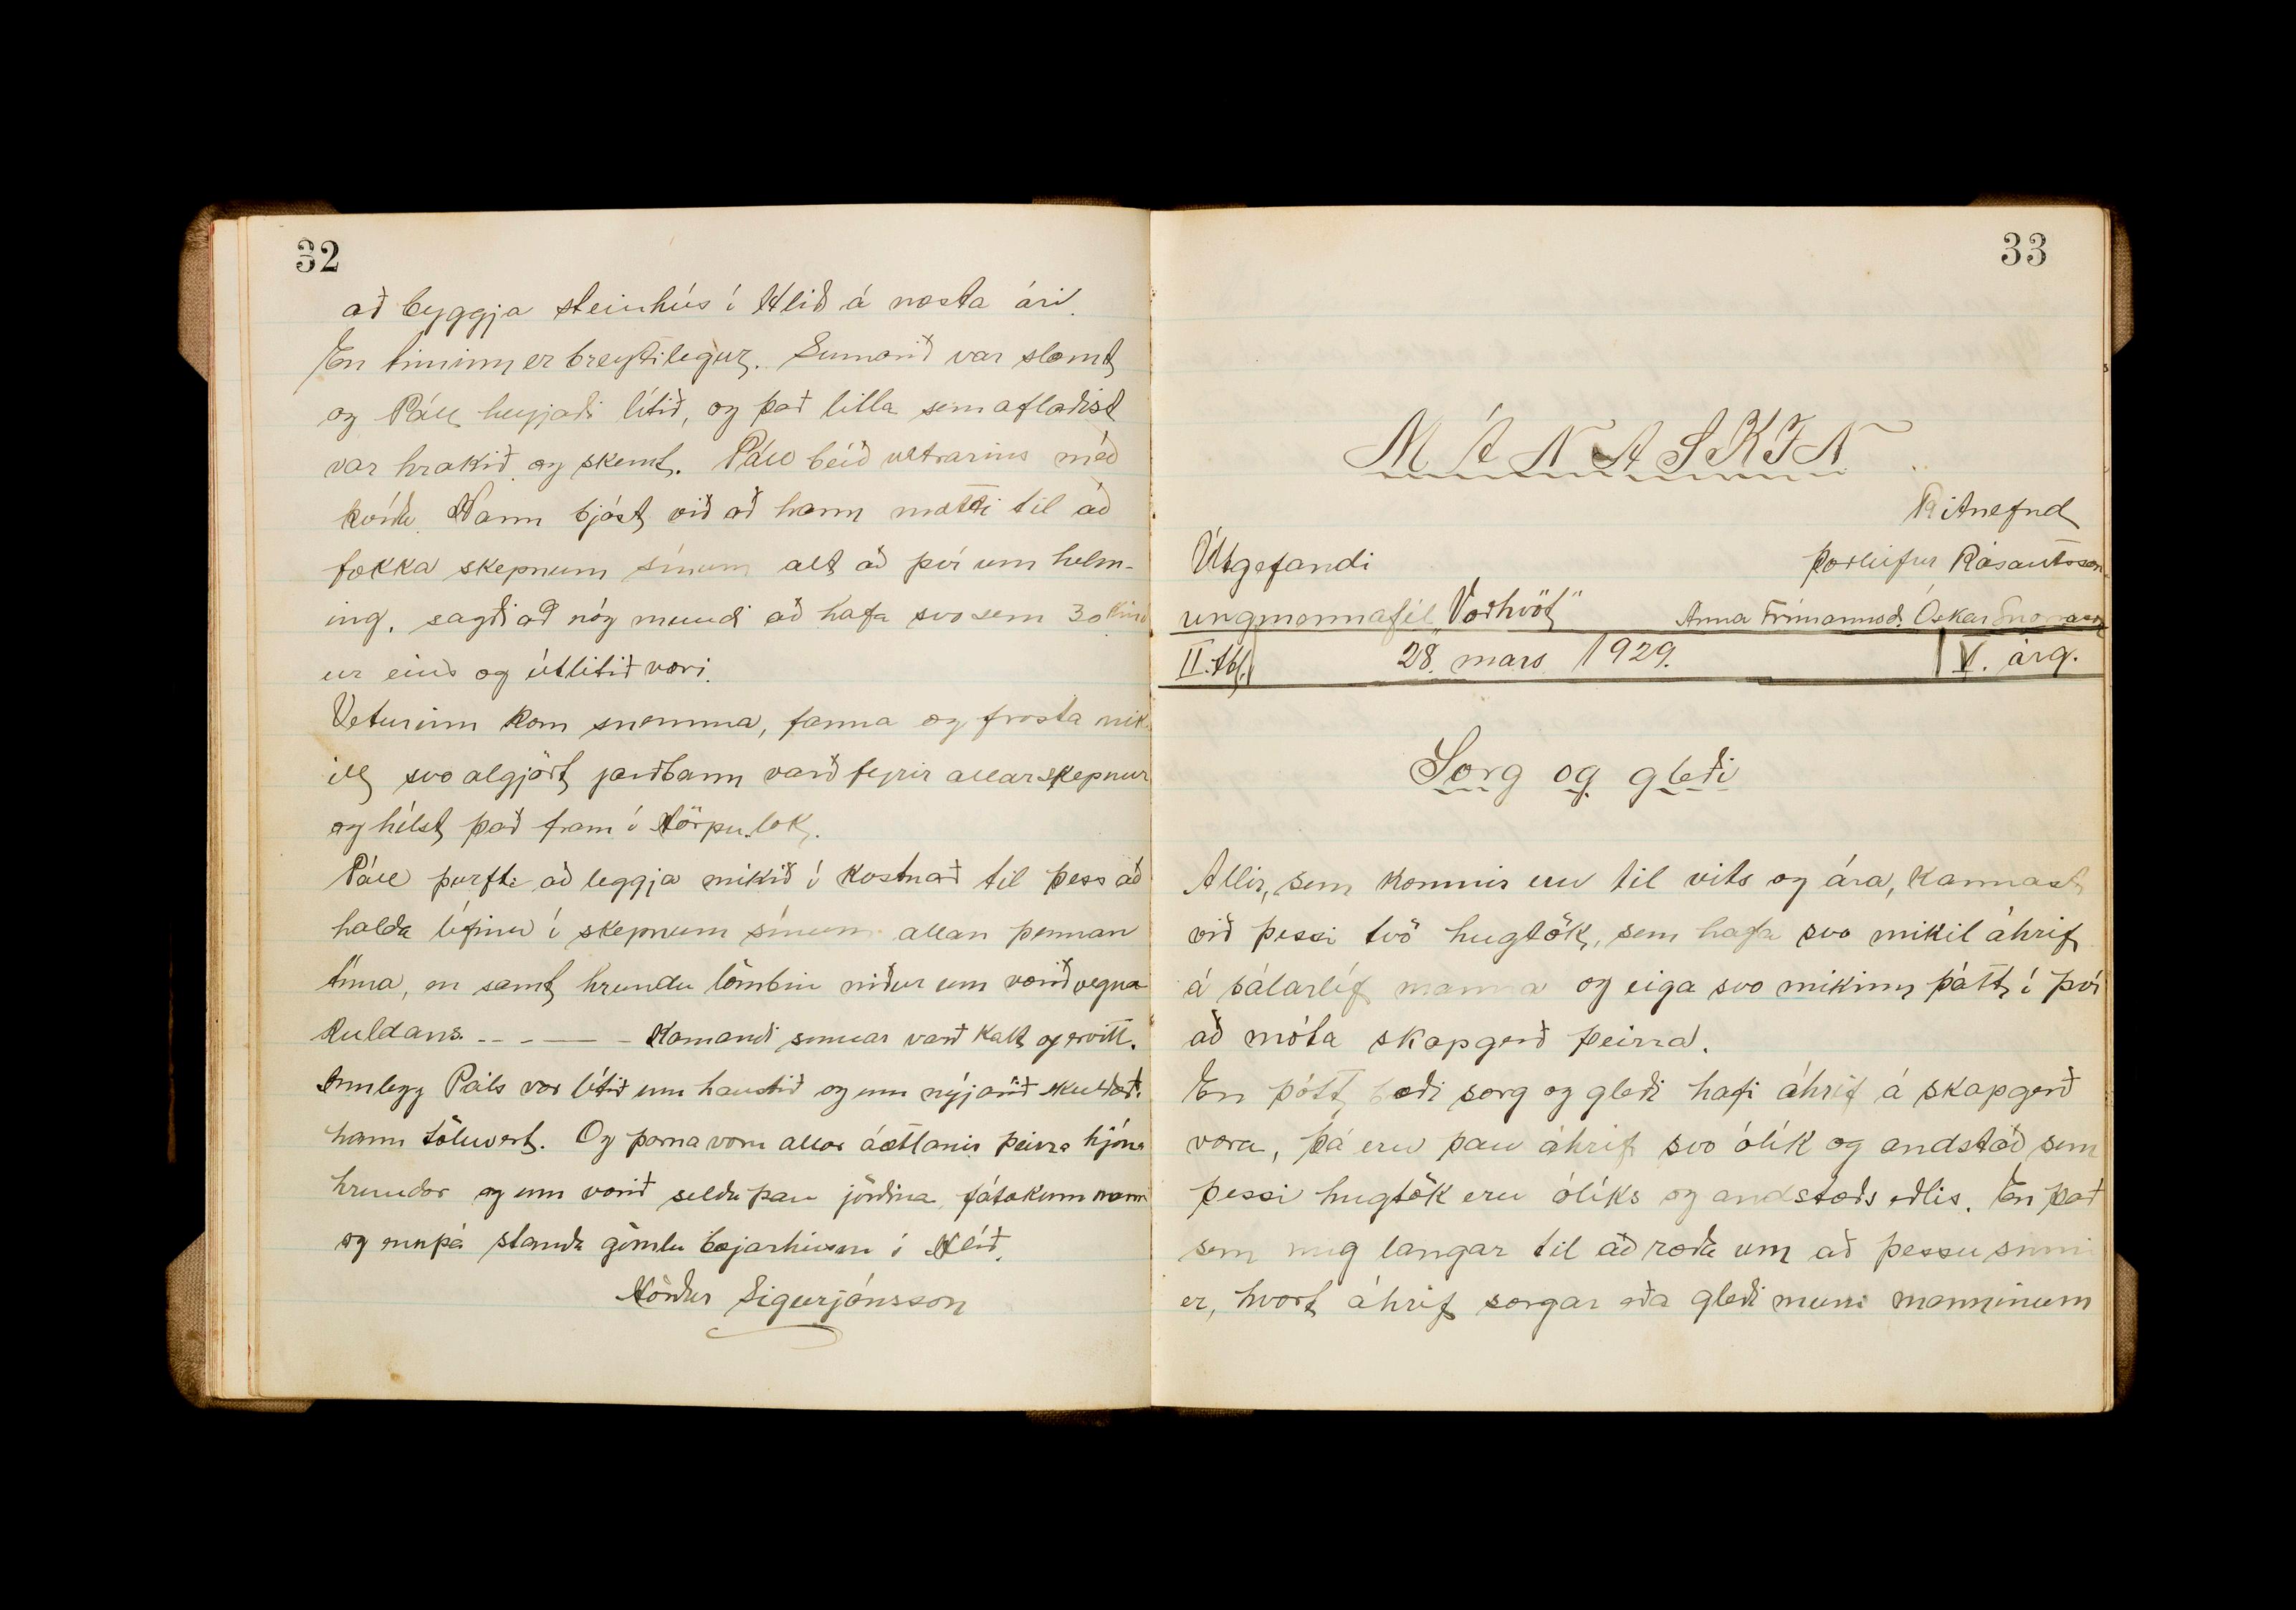 32
að byggja steinhús í Hlíð á næsta ári.
En tíminn er breytilegur. Sumarið var slæmt
og Páll heyjaði lítið, og það litla sem aflaðist
var hrakið og skemt. Páll beið vetrarins með
kvíða. Hann bjóst við að hann mætti til að
fækka skepnum sínum alt að því um helm-
ing. sagði að nóg mundi að hafa svo sem 30 kind
ur eins og útlitið væri.
Veturinn kom snemma, fanna og frosta mik
ill svo algjört jarðbann varð fyrir allar skepnur
og hélst það fram í Hörpu lok.
Páll þurfti að leggja mikið í kostnað til þess að
halda lífinu í skepnum sínum allan þennan
tíma, en samt hrundu lömbin niður um vorið vegna
kuldans. - - - — — - Komandi sumar varð kalt og ervitt.
Innlegg Páls var lítið um haustið og um nýjárið skuldað.
hann töluvert. Og þarna voru allar áætlanir þeirra hjóna
hrundar og um vorið seldu þau jörðina fátækum manni
og ennþá standa gömlu bæjarhúsin í Hlíð.
Hörður Sigurjónsson
33
MÁNASKIN
Ritnefnd
Útgefandi
Þorleifur Rósantsson
ungmennafél. „Vorhvöt"
Anna Frímannsd. Óskar Snorrason
II. tbl. 28. mars 1929. V. árg.
Sorg og gleði
Allir, sem komnir eru til vits og ára, kannast
við þessi tvö hugtök, sem hafa svo mikil áhrif
á sálarlíf manna og eiga svo mikinn þátt í því
að móta skapgerð þeirra.
En þótt bæði sorg og gleði hafi áhrif á skapgerð
vora, þá eru þau áhrif svo ólík og andstæð sem
þessi hugtök eru ólíks og andstæðs eðlis. En það
sem mig langar til að ræða um að þessu sinni
er, hvort áhrif sorgar eða gleði muni manninum